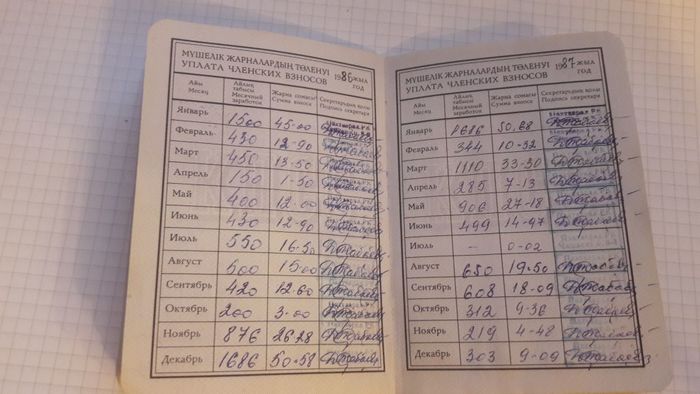 МҮШЕЛІК ЖАРНАЛАРДЫҢ ТӨЛЕНУІ
УПЛАТА ЧЛЕНСКИХ ВЗНОСОВ 1986 ЖЫЛ ГОД
Айы Месяц
Айлық табысы Месячный заработок
Жарна сомасы Сумма взноса
Секретардың қолы Подпись секретаря
Январь 1500 45-00
Февраль 430 12-90
Март 450 13-50
Апрель 150 1-50
Май 400 12-00
Июнь 430 12-90
Июль 550 16-50
Август 500 15-00
Сентябрь 420 12-60
Октябрь 200 3-00
Ноябрь 876 26-28
Декабрь 1686 50-58
МҮШЕЛІК ЖАРНАЛАРДЫҢ ТӨЛЕНУІ
УПЛАТА ЧЛЕНСКИХ ВЗНОСОВ 1987 ЖЫЛ ГОД
Айы Месяц
Айлық табысы Месячный заработок
Жарна сомасы Сумма взноса
Секретардың қолы Подпись секретаря
Январь 1686
Февраль 344 10-32
Март 1110 33-30
Апрель 285 7-13
Май 906 27-18
Июнь 499 14-97
Июль — 0-02
Август 650 19-50
Сентябрь 608 18-09
Октябрь 312 9-36
Ноябрь 219 4-48
Декабрь 303 9-09